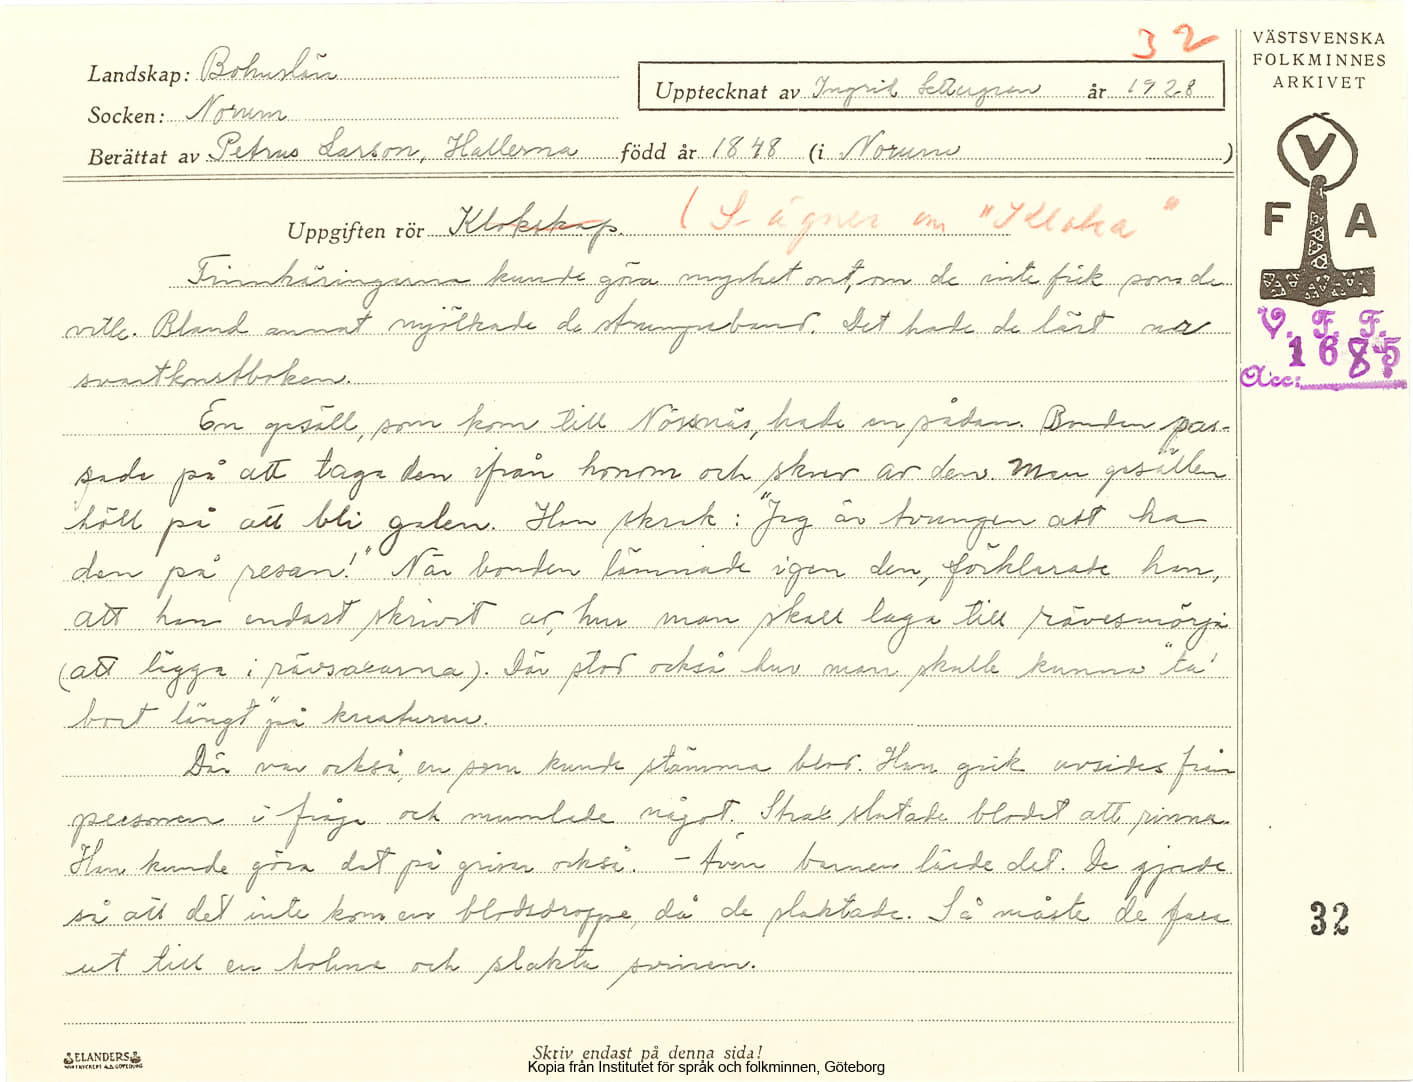 32
VÄSTSVENSKA
FOLKMINNES
ARKIVET
Landskap: Bohuslän
Upptecknat av Ingrid år 1928
Socken: Norum
Berättat av Petrus Larson, Hallerna född år 1848 (i Norum )
Uppgiften rör Klokskap. (Sägner om "Kloka"
Finnkäringarna kunde göra mycket ont, om de inte fick som de
ville. Bland annat mjölkade de strumpeband. Det hade de lärt ur
svartkonstboken.
En gesäll, som kom till Nösnäs, hade en sådan. Bonden pas-
sade på att taga den ifrån honom och skrev av den. Men gesällen
höll på att bli galen. Han skrek: "Jag är tvungen att ha
den på resan!" När bonden lämnade igen den, förklarade han,
att han endast skrivit av, hur man skall laga till rävesmörja
(att lägga i rävsaxarna). Där stod också hur man skulle kunna "ta
bort långt" på kreaturen.
Där var också en som kunde stämma blod. Han gick avsides från
personen i fråga och mumlade något. Strax slutade blodet att rinna.
Han kunde göra det på grisar också. – Även barnen lärde det. De gjorde
så att det inte kom en blodsdroppe, då de slaktade. Så måste de fara
ut till en holme och slakta svinen.
V
F A
V. F. F.
Acc: 1685
32
ELANDERS
Skriv endast på denna sida!
Kopia från Institutet för språk och folkminnen, Göteborg